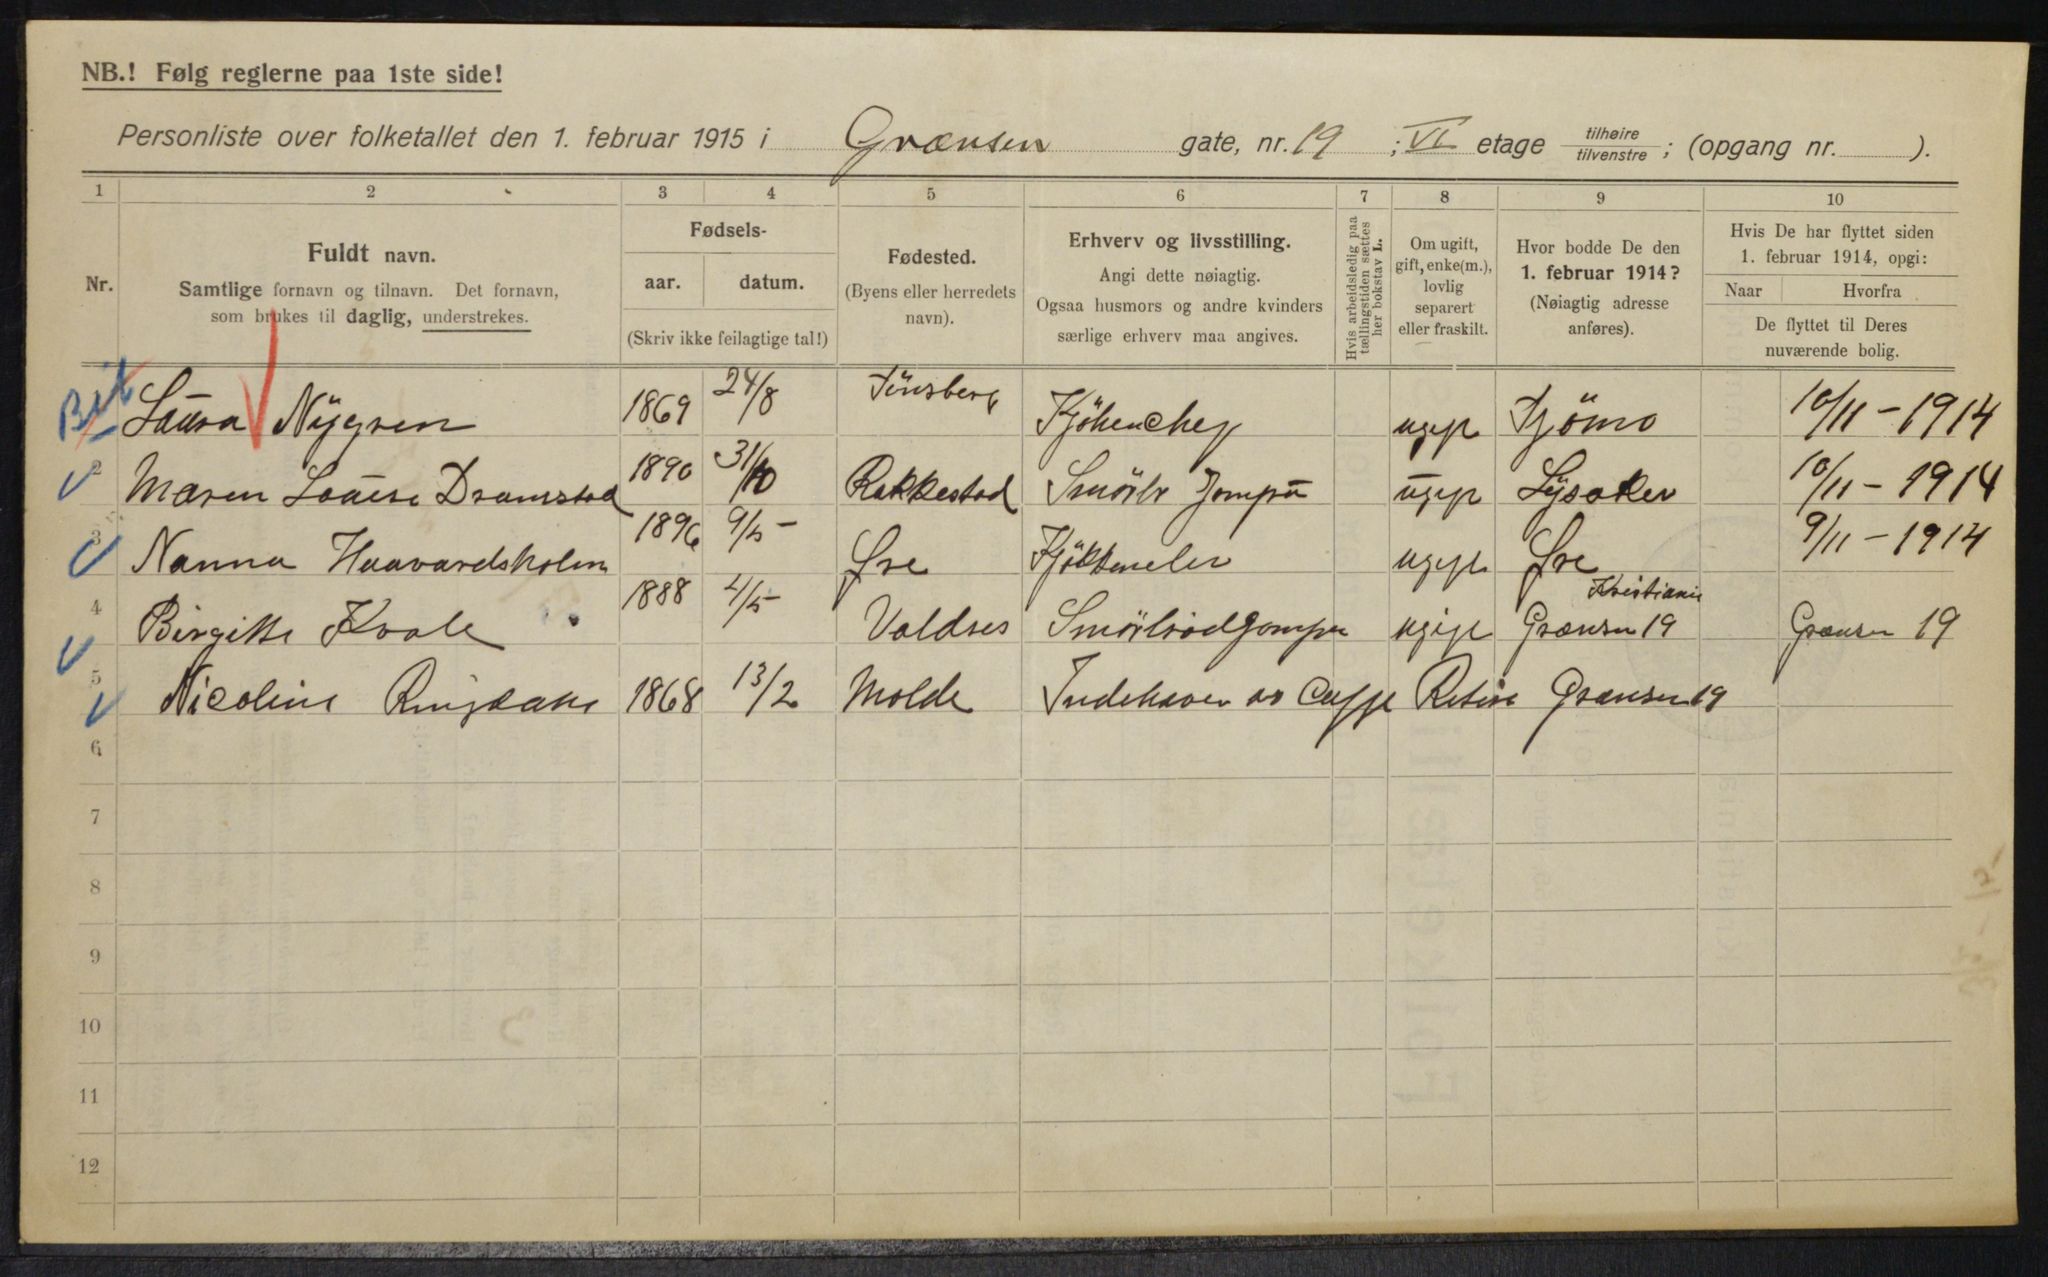 NB.! Følg reglerne paa 1ste side!
Personliste over folketallet den 1. februar 1915 i Grænsen gate, nr. 19 ; VI etage tilhøire tilvenstre ; (opgang nr. ).
1 2 3 4 5 6 7 8 9 10
Nr.
Fuldt navn.
Samtlige fornavn og tilnavn. Det fornavn,
som brukes til daglig, understrekes.
Fødsels-
aar. datum.
(Skriv ikke feilagtige tal!)
Fødested.
(Byens eller herredets
navn).
Erhverv og livsstilling.
Angi dette nøiagtig.
Ogsaa husmors og andre kvinders
særlige erhverv maa angives.
Hvis arbeidsledig paa
tællingstiden sættes
her bokstav L.
Om ugift,
gift, enke(m.),
lovlig
separert
eller fraskilt.
Hvor bodde De den
1. februar 1914?
(Nøiagtig adresse
anføres).
Hvis De har flyttet siden
1. februar 1914, opgi:
Naar Hvorfra
De flyttet til Deres
nuværende bolig.
Laura Nygren 1869 24/8 Tönsberg ugift Tjömo 10/11 - 1914
2 Maren Louise Dramstad 1890 31/10 Rakkestad Smörbr Jomfru ugift Lysaker 10/11 - 1914
3 Nanna Haavardsholm 1896 9/5 - Øre ugift Øre 9/11 - 1914
4 Birgitte Kvale 1888 4/5 - Valdres Smörbrödjomfru ugift Kristiania Grænsen 19 Grænsen 19
5 Nicoline 1868 13/2 Molde Indehaver av Caffe Grænsen 19
6
7
8
9
10
11
12